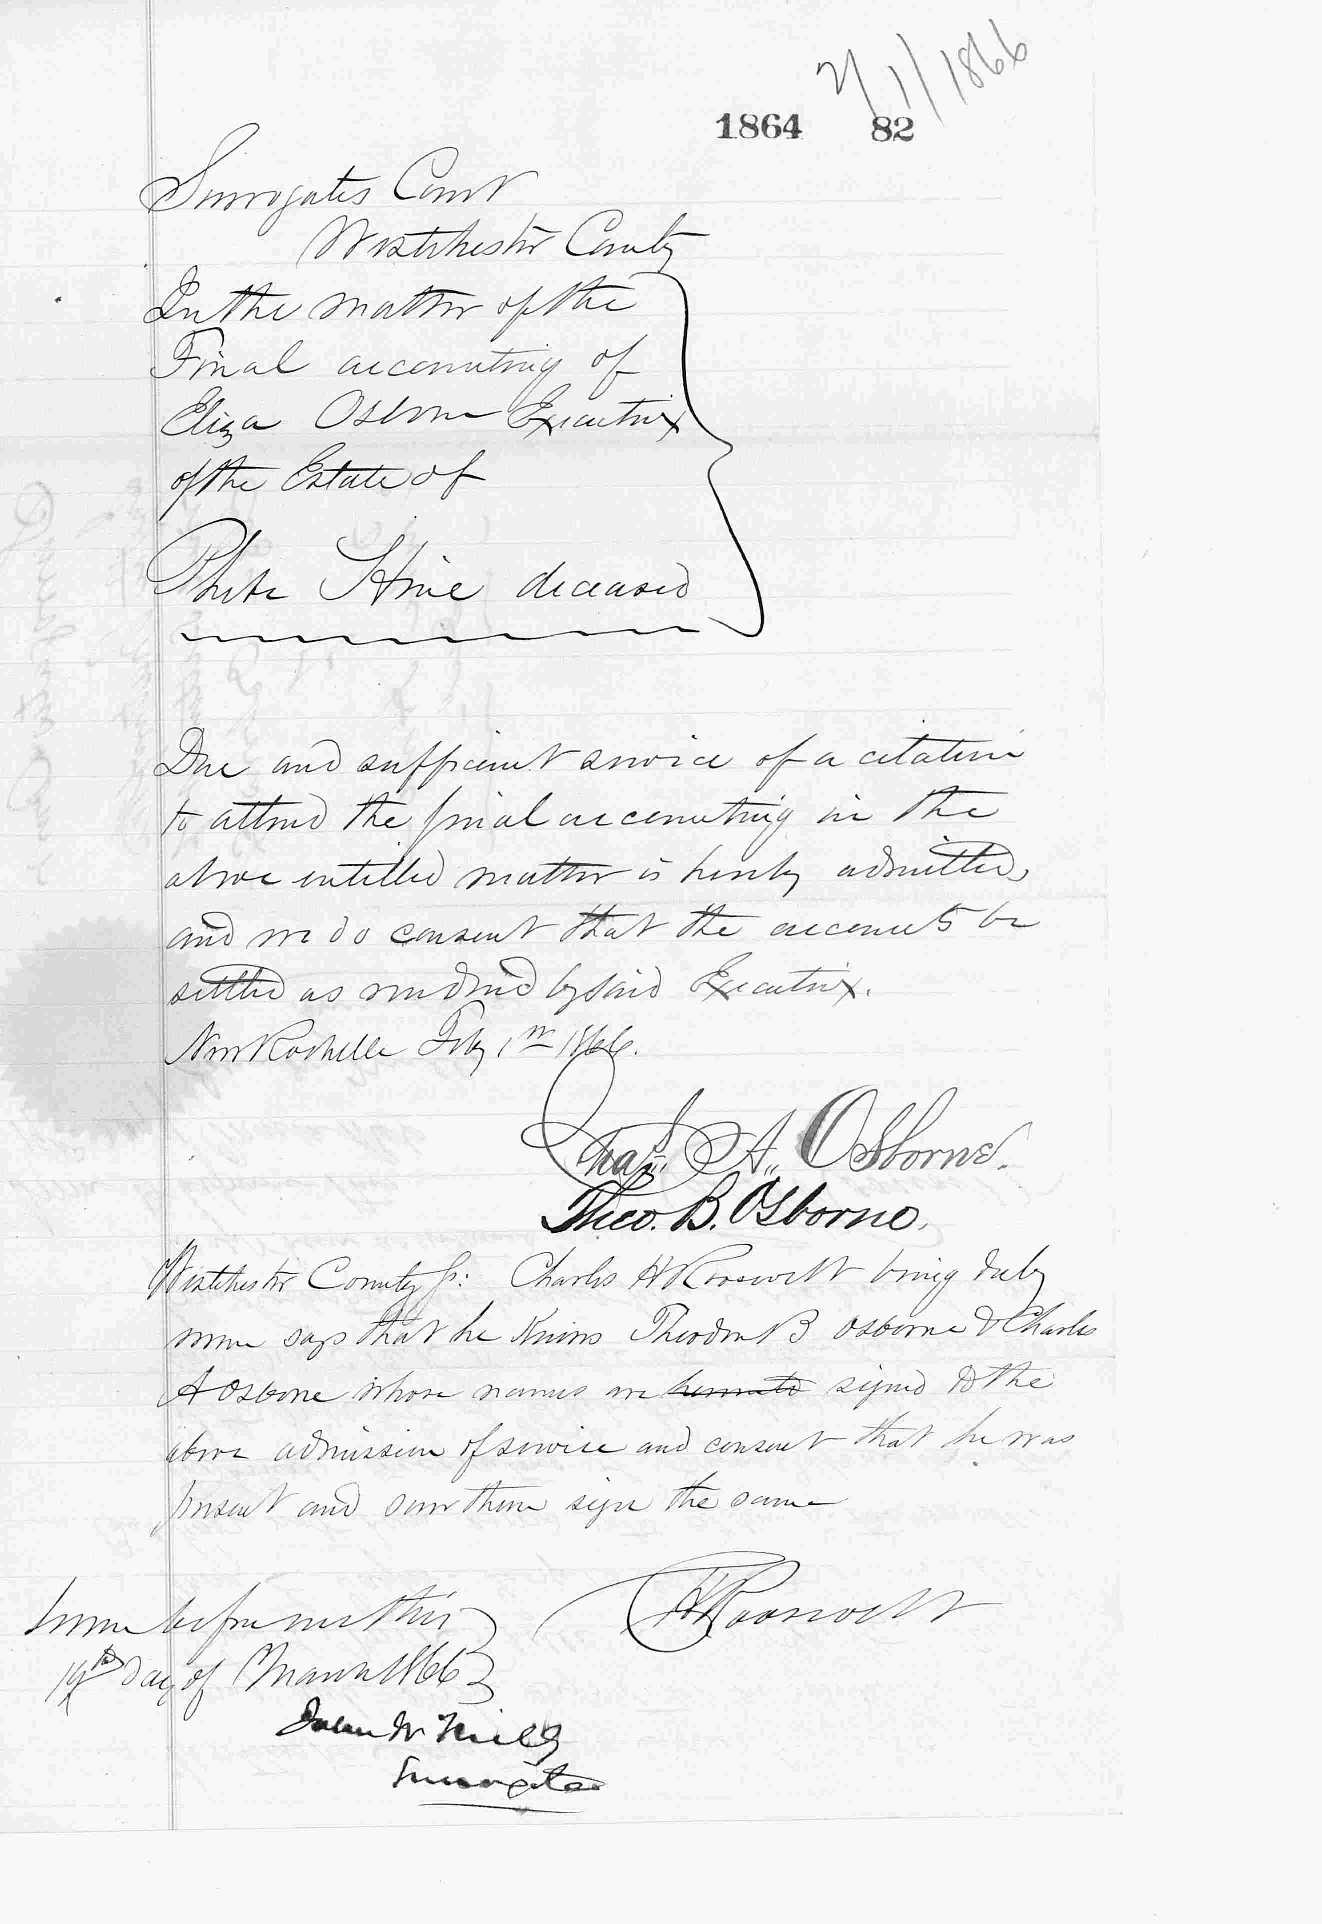 2/1/1866
1864 82
Surrogates Court
Westchester County
In the matter of the
Final accounting of
Eliza Osborne Executrix
of the Estate of
Phebe Hine deceased
Due and sufficient service of a citation
to attend the final accounting in the
above entitled matter is hereby admitted,
and we do consent that the accounts be
settled as rendered by said Executrix.
New Rochelle Feby 1st 1866.
Chas. A. Osborne.
Theo. B. Osborne.
Westchester County ss: Charles H Roosevelt being duly
sworn says that he knows Theodore B Osborne & Charles
A Osborne whose names are signed to the
above admission of service and consent that he was
present and saw them sign the same
Sworn before me this
C H Roosevelt
19th day of March 1866
John W Mills
Surrogate